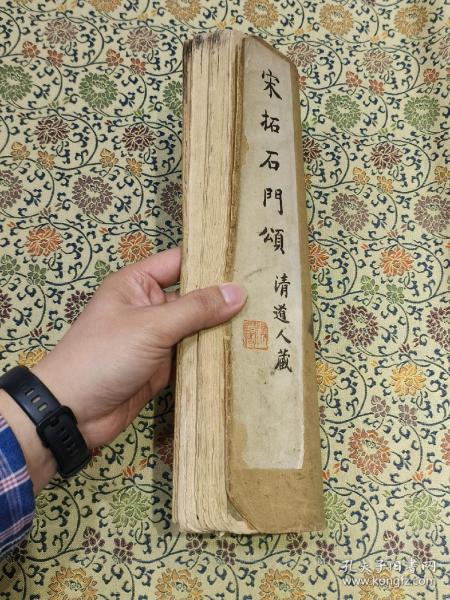 宋拓石門頌
清道人藏
孔夫子旧书网
www.kongfz.com